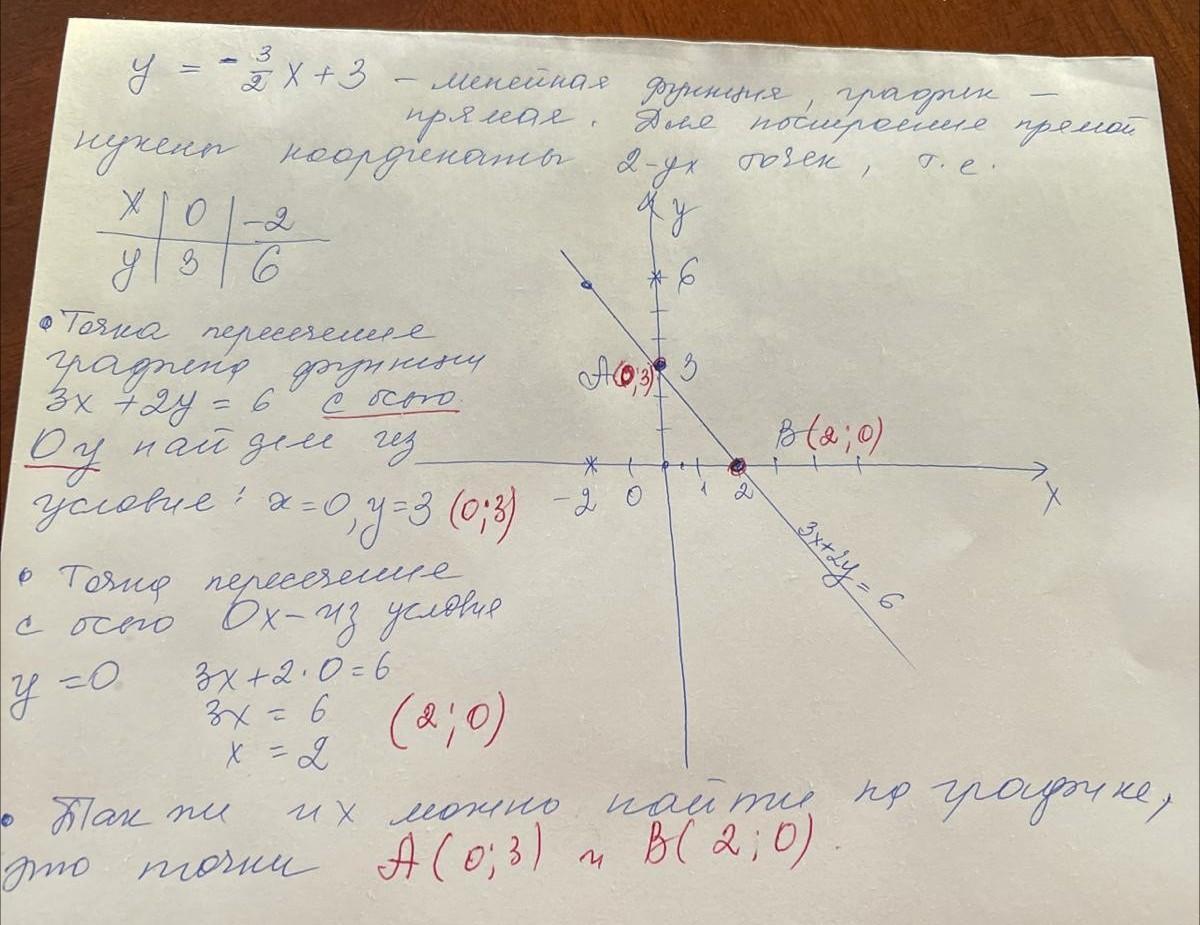 y = -3/2 x + 3 – линейная функция, график –
прямая. Для построения прямой
нужны координаты 2-ух точек, т.е.
x | 0 | -2
y | 3 | 6
• Точка пересечения
графика функции
3x + 2y = 6 с осью
Oy найдем из
условия: x = 0, y = 3 (0;3)
• Точка пересечения
с осью Ox – из условия
y = 0 3x + 2·0 = 6
3x = 6 (2;0)
x = 2
y
6
3
A(0;3)
B(2;0)
-2 0 1 2 x
3x+2y=6
• Так же их можно найти по графике,
это точки A(0;3) и B(2;0).